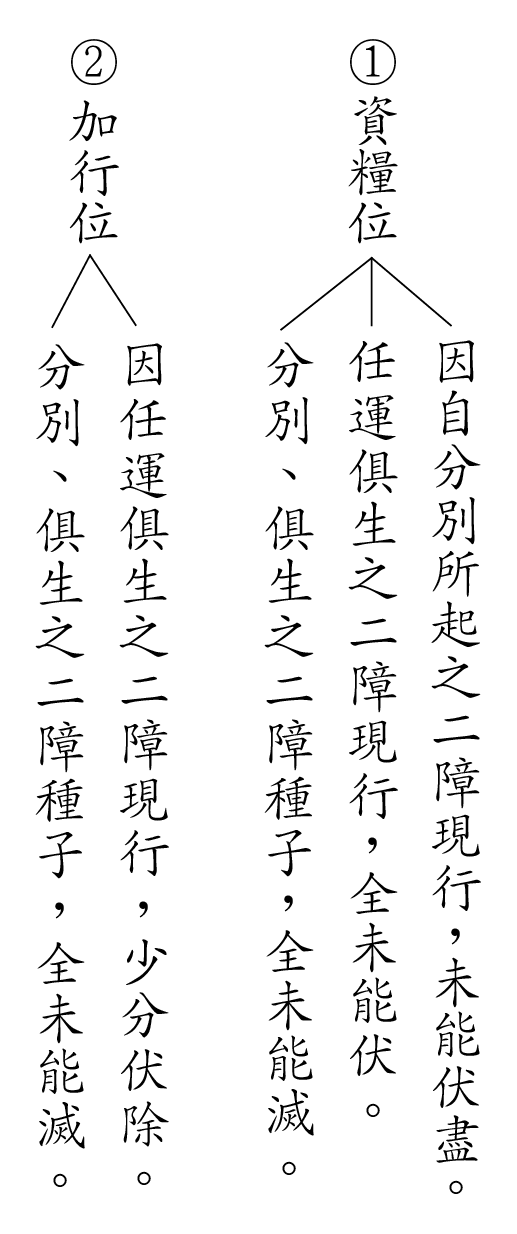 ①資糧位
因自分別所起之二障現行，未能伏盡。
任運俱生之二障現行，全未能伏。
分別、俱生之二障種子，全未能滅。
②加行位
因任運俱生之二障現行，少分伏除。
分別、俱生之二障種子，全未能滅。